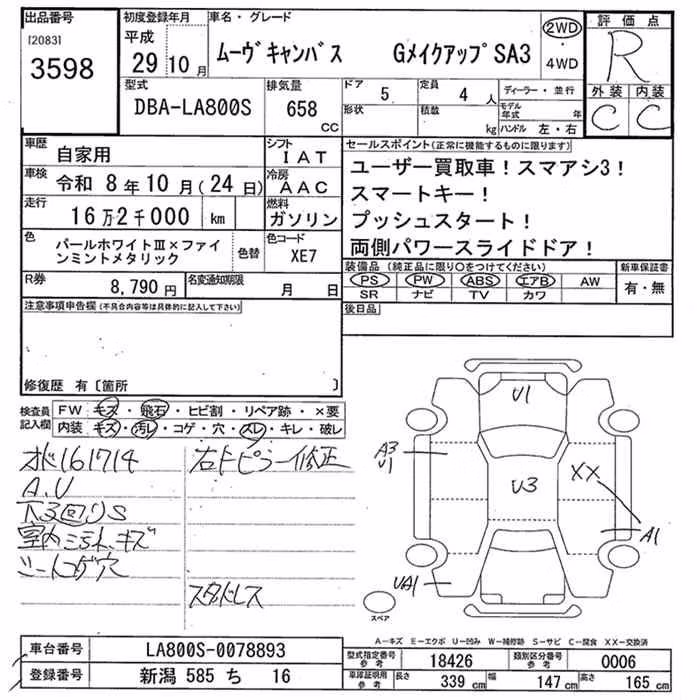 出品番号 初度登録年月 車名・グレード 評価点
[2083] 平成 2WD R
3598 29 10月 ムーヴキャンバス GメイクアップSA3 ・4WD
型式 排気量 ドア 5 定員 4人 ディーラー・並行 外装 内装
DBA-LA800S 658 cc 形状 積載 kg モデル年式 年 C C
ハンドル 左・右
車歴 自家用 シフト IAT セールスポイント(正常に機能するものに限ります)
車検 令和 8年10月(24日) 冷房 AAC ユーザー買取車!スマアシ3!
走行 16万2千000 km 燃料 ガソリン スマートキー!
プッシュスタート!
色 パールホワイトⅢ×ファインミントメタリック 色替 色コード XE7 両側パワースライドドア!
R券 8,790円 名変通知期限 月 日 装備品(純正品に限り○をつけてください) 新車保証書
PS PW ABS エアB AW 有・無
SR ナビ TV カワ
注意事項申告欄(不具合内容等は具体的に記入して下さい) 後日品
修復歴 有〔箇所 〕
検査員記入欄 FW キズ・飛石・ヒビ割・リペア跡・×要
内装 キズ・汚レ・コゲ・穴・スレ・キレ・破レ
オド161714 右Fピラー修正
A.U
下3回りS
室内ミラー汚れ、キズ
シートコゲ穴
スタッドレス
U1
A3
U1
U3
XX
A1
UA1
スペア
A-キズ E-エクボ U-凹み W-補修跡 S-サビ C-腐食 XX-交換済
車台番号 LA800S-0078893 型式指定番号 参考 18426 類別区分番号 参考 0006
登録番号 新潟 585 ち 16 車庫証明用 参考 長さ 339 cm 幅 147 cm 高さ 165 cm